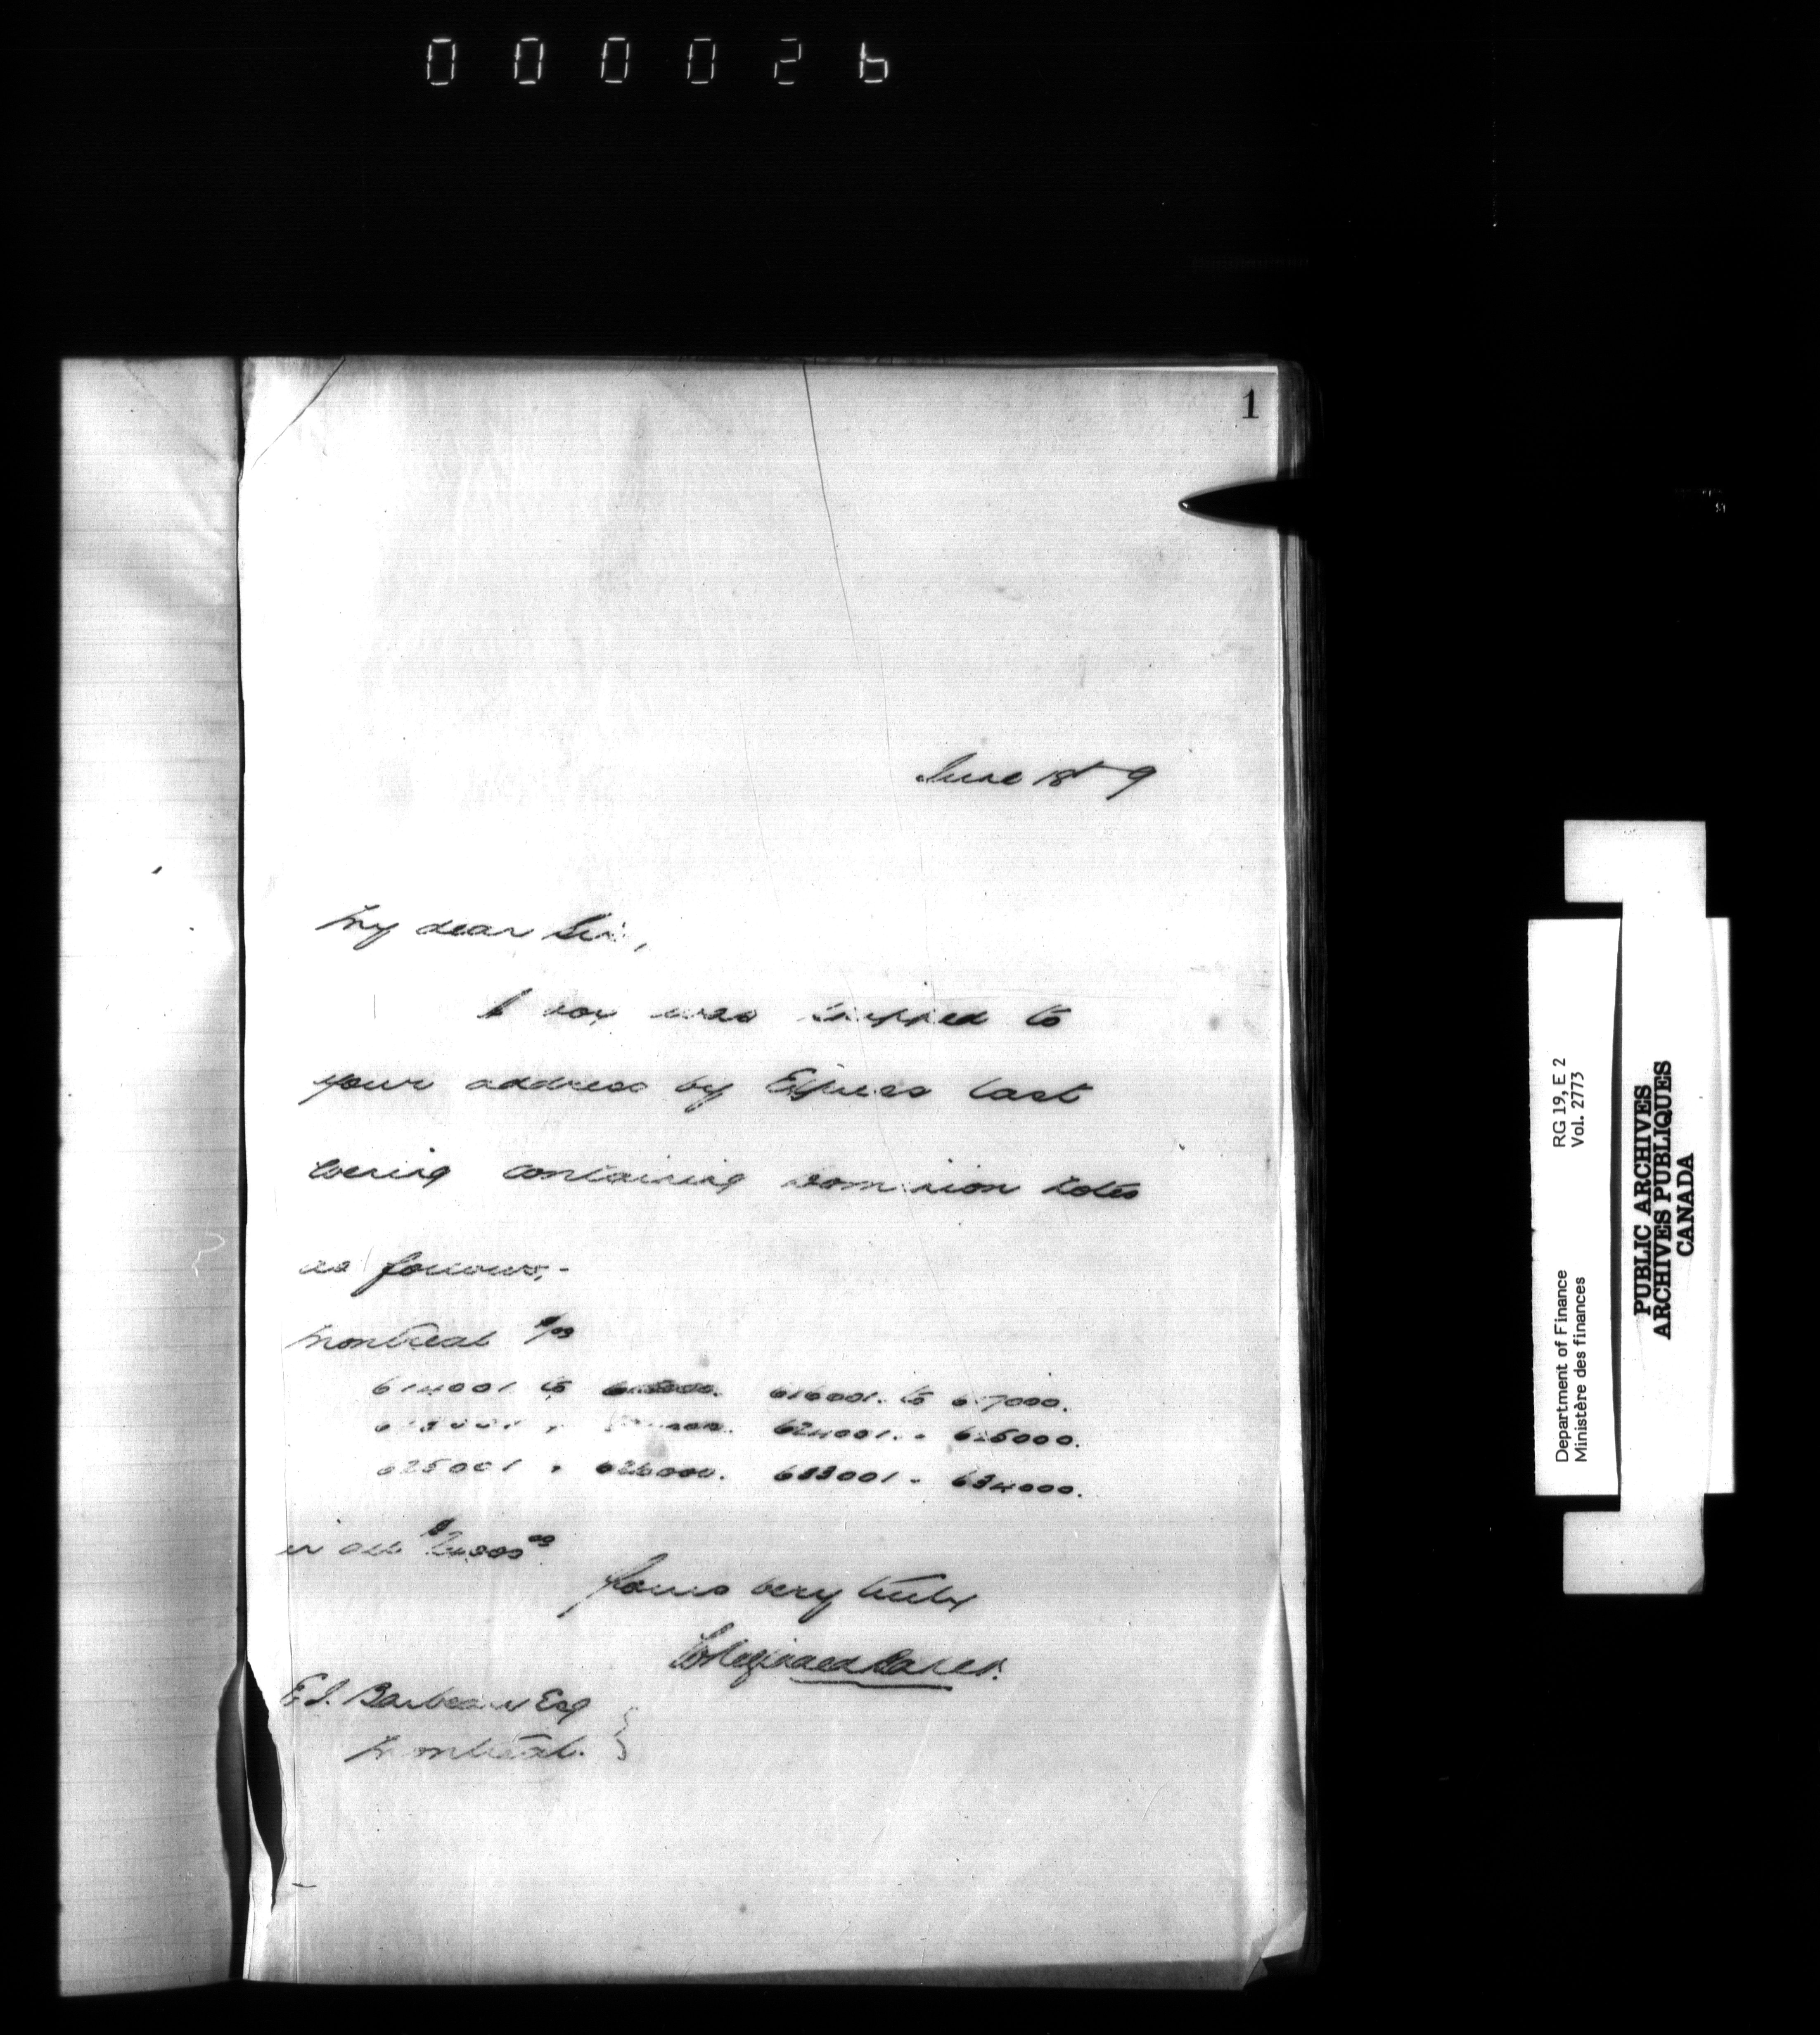 000026
1
June 18th 9
My dear Sir,
A box was shipped to
your address by Express last
evening containing Dominion Notes
as follows,-
Montreal
614001 to 616001. to 617000.
624001. " 625000.
625001 " 626000. 633001 " 634000.
in all
Yours very truly
E. S. Barbeau Esq
Montreal.
Department of Finance RG 19, E 2
Ministère des finances Vol. 2773
PUBLIC ARCHIVES
ARCHIVES PUBLIQUES
CANADA